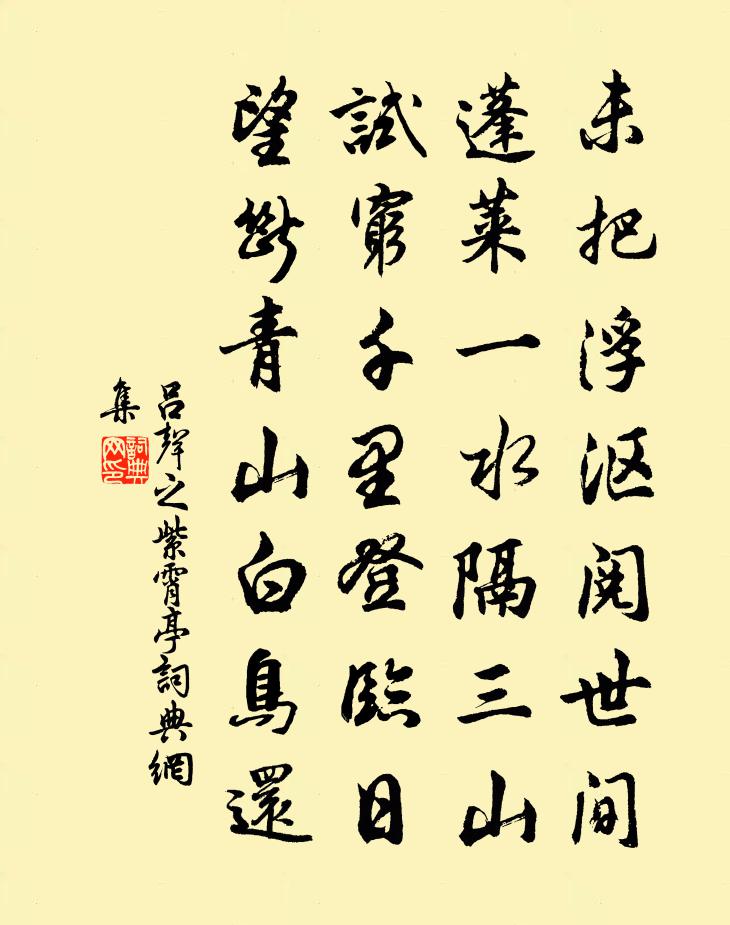 未把浮沤阅世间
蓬莱一水隔三山
試窮千里登臨日
望断青山白鳥還
吕聲之紫霄亭詞典網
集
詞典
网印